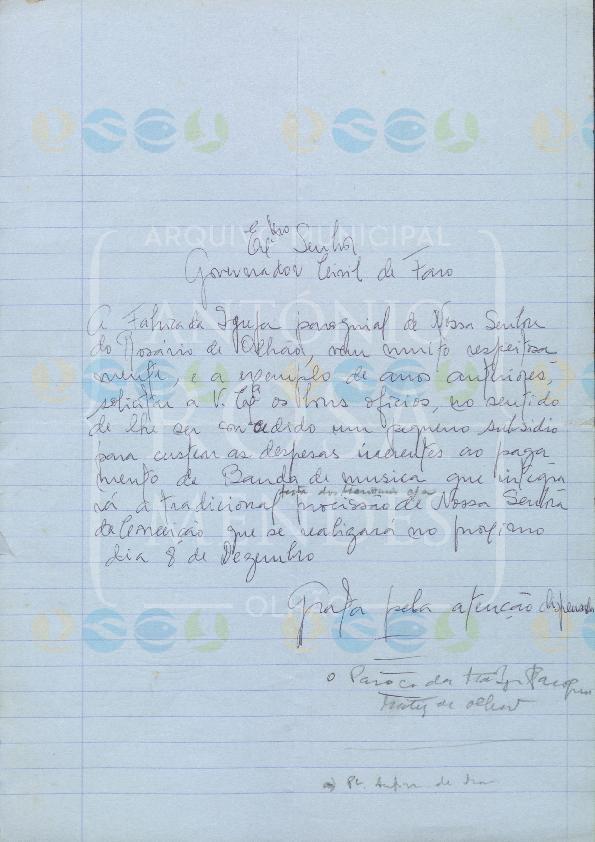 Exmo
Exº Senhor
Governador Civil de Faro
A Fabrica da Igreja paroquial de Nossa Senhora
do Rosário de Olhão, vem muito respeitosa
mente, e a exemplo de anos anteriores,
solicitar a V. Exª os bons ofícios, no sentido
de lhe ser concedido um pequeno subsidio
para custear as despesas inerentes ao paga
mento de Banda de musica que integra
rá a tradicional procissão de Nossa Senhora
da Conceição que se realizará no proximo
dia 8 de Dezembro
Grata pela atenção dispensada
O Paroco da
de Olhão
a) Pe.
ARQUIVO MUNICIPAL
ANTÓNIO
ROSA
MENDES
OLHÃO